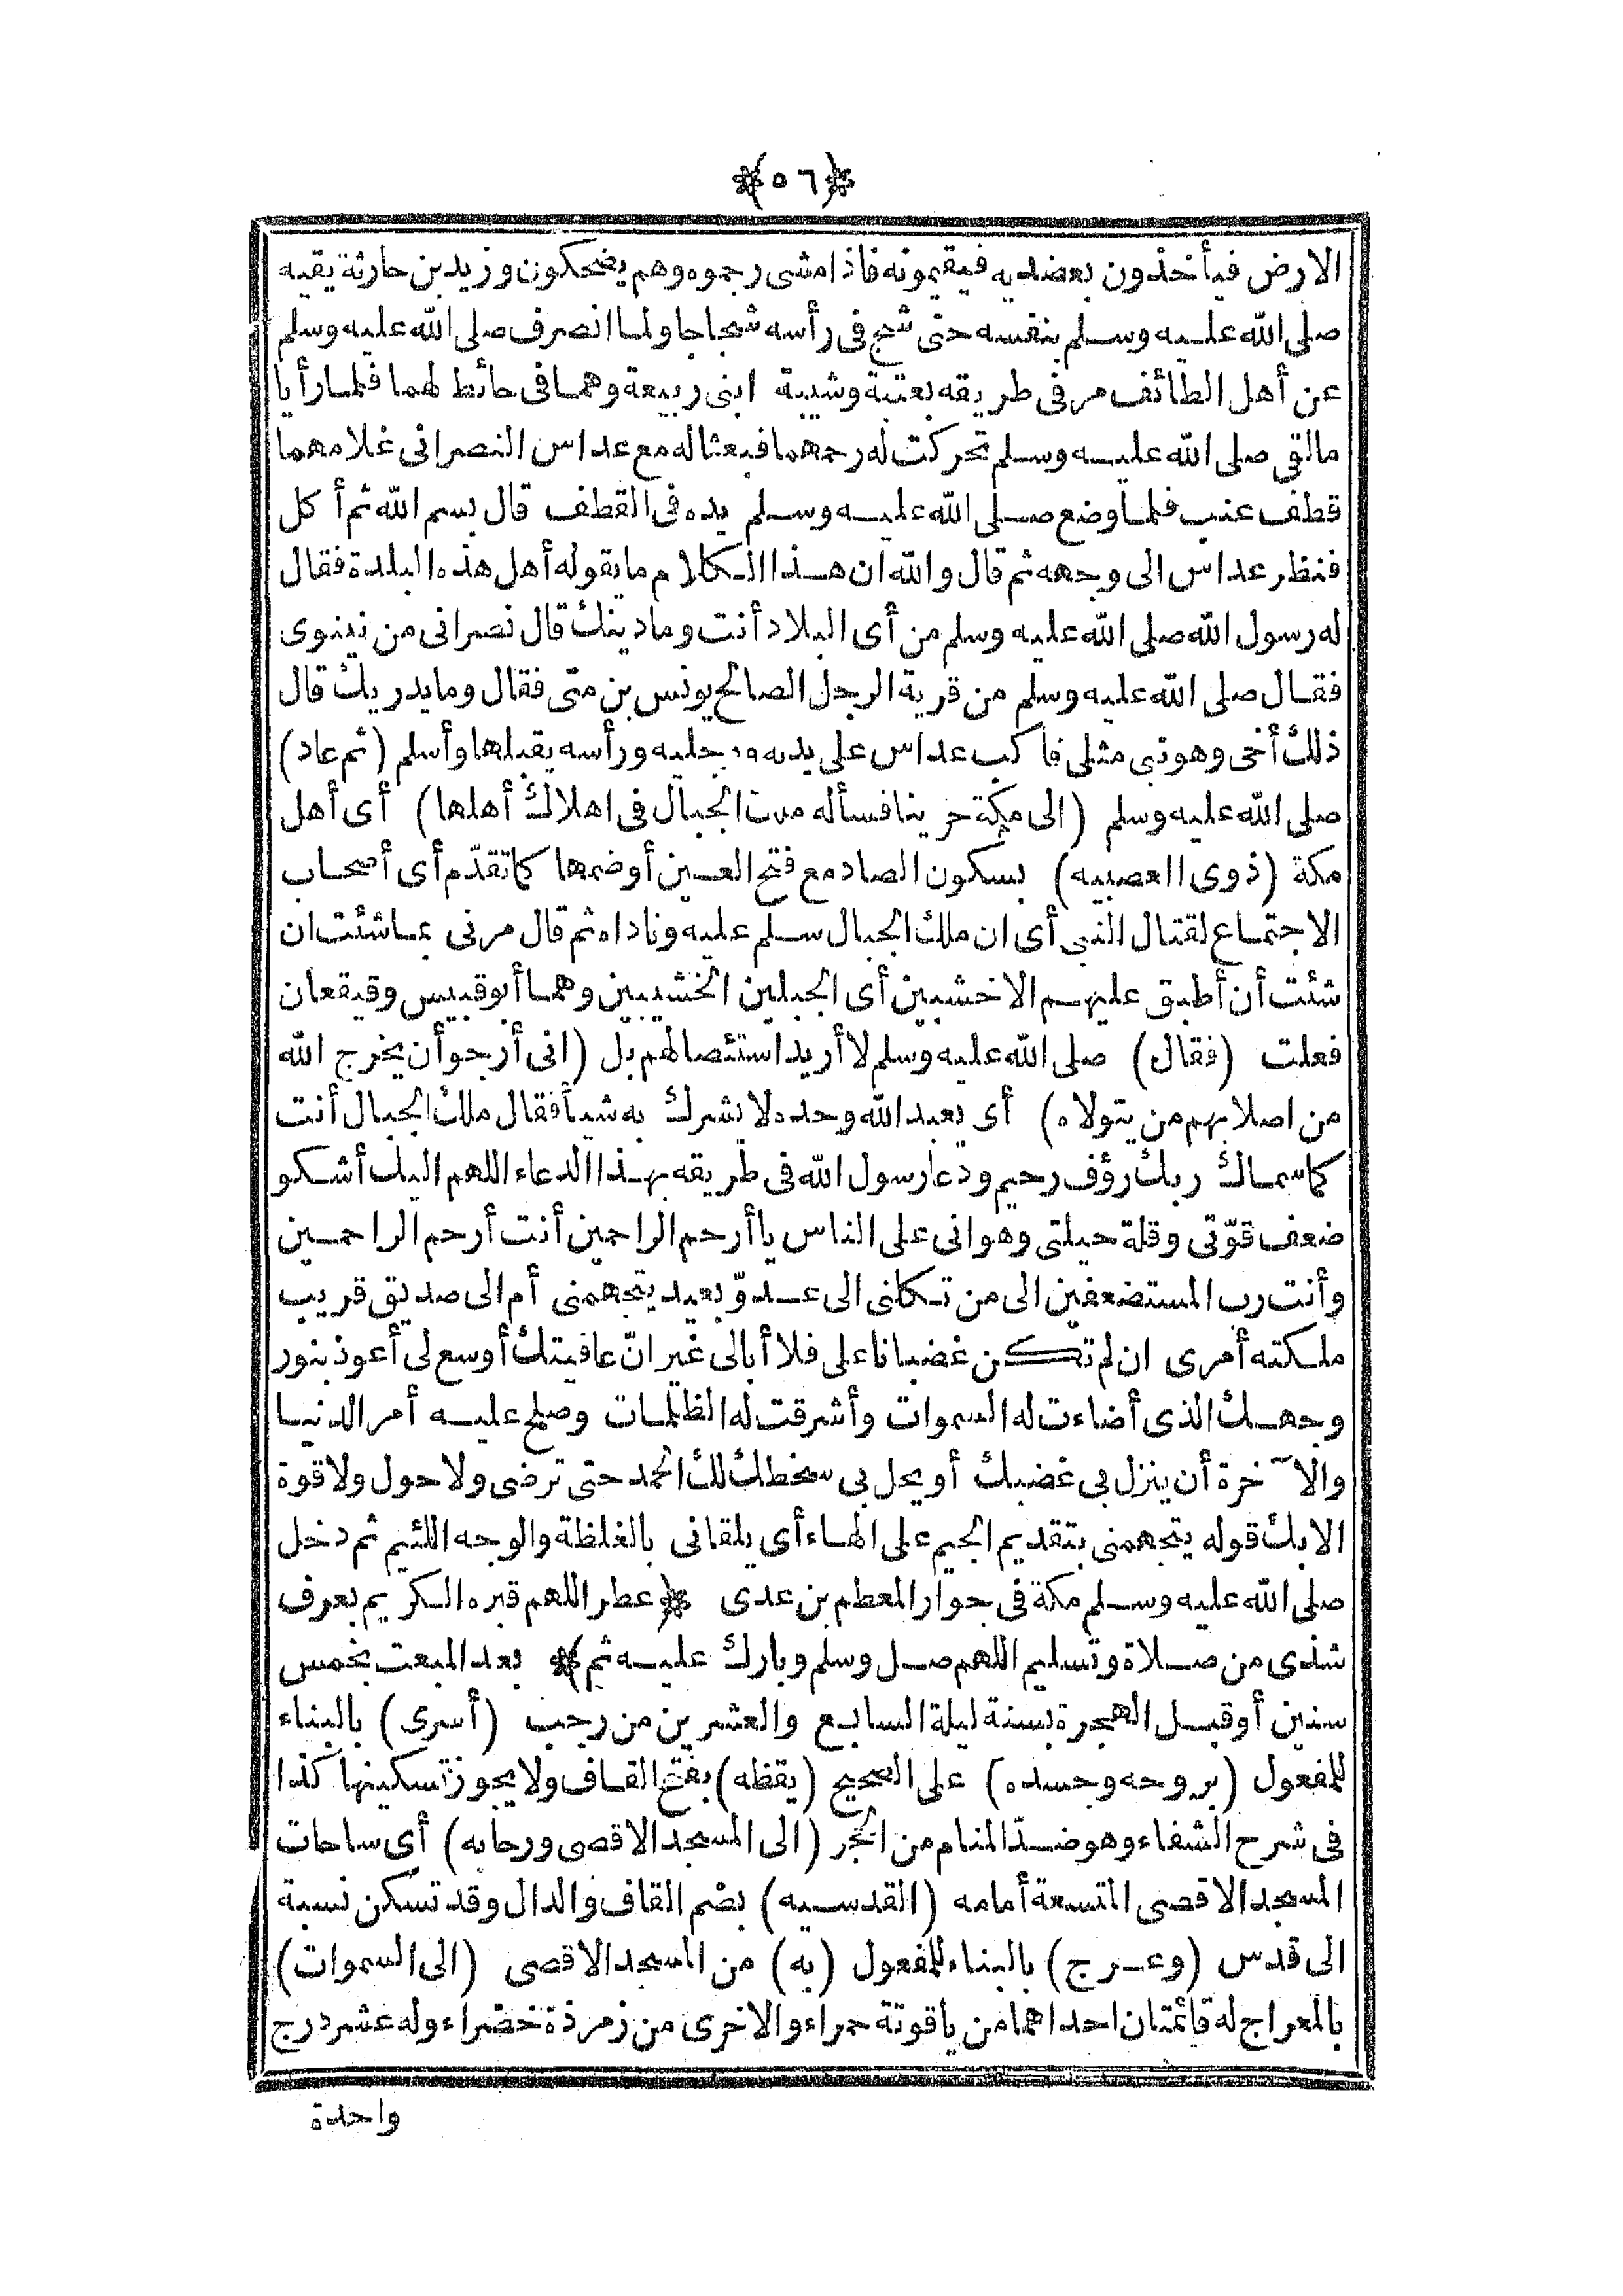 ﴿٥٦﴾
الارض فيأخذون بعضديه فيقيمونه فاذا مشى رجموه وهم يضحكون وزيد بن حارثة يقيه
صلى الله عليه وسلم بنفسه حتى شج فى رأسه شجاجا ولما انصرف صلى الله عليه وسلم
عن أهل الطائف مر فى طريقه بعتبة وشيبة ابنى ربيعة وهما فى حائط لهما فلما رأيا
مالقى صلى الله عليه وسلم تحركت له رحمهما فبعثا له مع عداس النصرانى غلامهما
قطف عنب فلما وضع صلى الله عليه وسلم يده فى القطف قال بسم الله ثم أكل
فنظر عداس الى وجهه ثم قال والله ان هذا الكلام ما يقوله أهل هذه البلدة فقال
له رسول الله صلى الله عليه وسلم من أى البلاد أنت وما دينك قال نصرانى من نينوى
فقال صلى الله عليه وسلم من قرية الرجل الصالح يونس بن متى فقال وما يدريك قال
ذلك أخى وهو نبى مثلى فاكب عداس على يديه ورجليه ورأسه يقبلها وأسلم (ثم عاد)
صلى الله عليه وسلم (الى مكة حزينا فسأله ملك الجبال فى اهلاك أهلها) أى أهل
مكة (ذوى العصبيه) بسكون الصاد مع فتح العين أو ضمها كما تقدّم أى أصحاب
الاجتماع لقتال النبى أى ان ملك الجبال سلم عليه وناداه ثم قال مرنى بما شئت ان
شئت أن أطبق عليهم الاخشبين أى الجبلين الخشيبين وهما أبو قبيس وقيقعان
فعلت (فقال) صلى الله عليه وسلم لا أريد استئصالهم بل (انى أرجو أن يخرج الله
من اصلابهم من يتولاه) أى يعبد الله وحده لا نشرك به شيأ فقال ملك الجبال أنت
كما سماك ربك رؤف رحيم ودعا رسول الله فى طريقه بهذا الدعاء اللهم اليك أشكو
ضعف قوّتى وقلة حيلتى وهوانى على الناس يا أرحم الراحمين أنت أرحم الراحمين
وأنت رب المستضعفين الى من تكلنى الى عدوّ بعيد يتجهمنى أم الى صديق قريب
ملكته أمرى ان لم تكن غضبانا على فلا أبالى غير انّ عافيتك أوسع لى أعوذ بنور
وجهك الذى أضاءت له السموات وأشرقت له الظلمات وصلح عليه أمر الدنيا
والآخرة أن ينزل بى غضبك أو يحل بى سخطك لك الحمد حتى ترضى ولا حول ولا قوة
الا بك قوله يتجهمنى بتقديم الجيم على الهاء أى يلقانى بالغلظة والوجه اللئيم ثم دخل
صلى الله عليه وسلم مكة فى جوار المعطم بن عدى ﴿عطر اللهم قبره الكريم بعرف
شذى من صلاة وتسليم اللهم صل وسلم وبارك عليه ثم﴾ بعد المبعث بخمس
سنين أو قبل الهجرة بسنة ليلة السابع والعشرين من رجب (أسرى) بالبناء
للمفعول (بروحه وجسده) على الصحيح (يقظه) بفتح القاف ولا يجوز تسكينها كذا
فى شرح الشفاء وهو ضدّ المنام من الحجر (الى المسجد الاقصى ورحابه) أى ساحات
المسجد الاقصى المتسعة أمامه (القدسيه) بضم القاف والدال وقد تسكن نسبة
الى قدس (وعرج) بالبناء للمفعول (به) من المسجد الاقصى (الى السموات)
بالمعراج له قائمتان احداهما من ياقوتة حمراء والاخرى من زمرذة خضراء وله عشر درج
واحدة